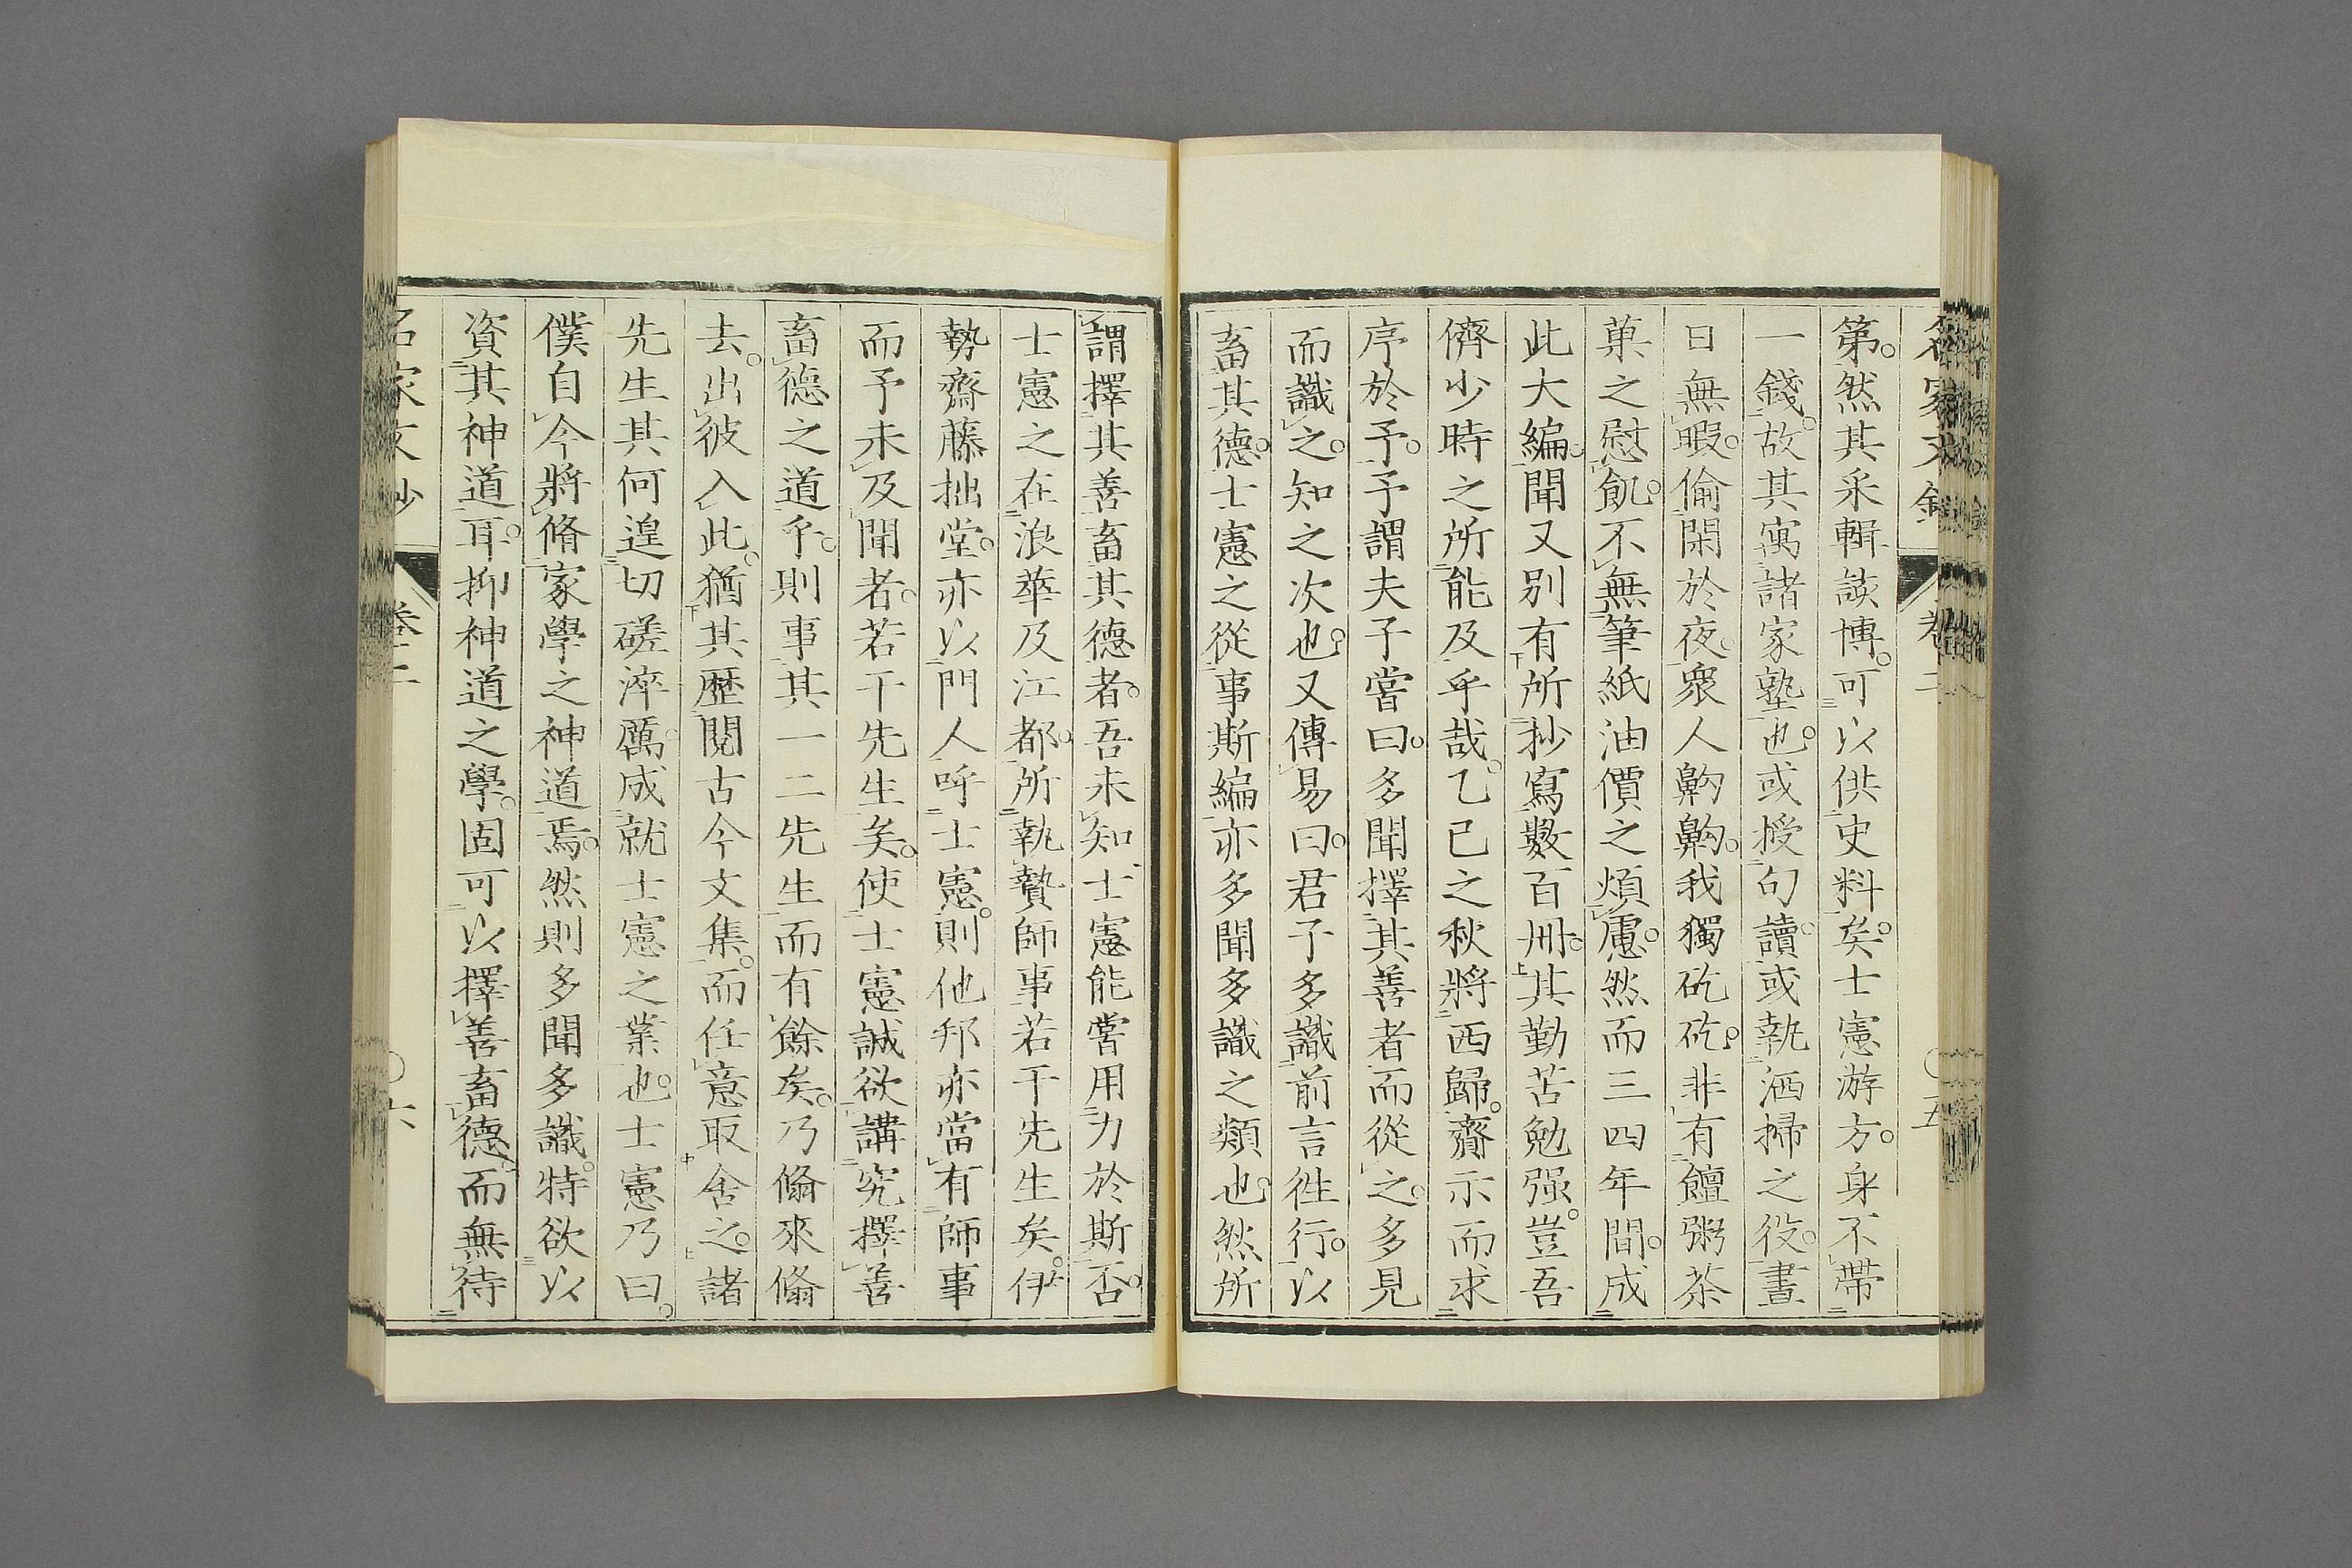 第。然其采輯談博。可以供史料矣。士憲游方。身不帶
一錢。故其寓諸家塾也。或授句讀。或執洒掃之役。晝
日無暇。偷閑於夜。衆人齁齁。我獨矻矻。非有饘粥茶
菓之慰飢。不無筆紙油價之煩慮。然而三四年間。成
此大編。聞又别有所抄寫數百冊。其勤苦勉强。豈吾
儕少時之所能及乎哉。乙巳之秋將西歸。齎示而求
序於予。予謂夫子嘗曰。多聞擇其善者而從之。多見
而識之。知之次也。又傳易曰。君子多識前言徃行。以
畜其德。士憲之從事斯編亦多聞多識之類也。然所
謂擇其善畜其德者。吾未知士憲能嘗用力於斯否。
士憲之在浪華及江都。所執贄師事若干先生矣。伊
勢齋藤拙堂。亦以門人呼士憲。則他邦亦當有師事
而予未及聞者。若干先生矣。使士憲誠欲講究擇善
畜德之道乎。則事其一二先生而有餘矣。乃翛來翛
去。出彼入此。猶其歴閱古今文集。而任意取舍之。諸
先生其何遑切磋淬厲。成就士憲之業也。士憲乃曰。
僕自今將脩家學之神道焉。然則多聞多識。特欲以
資其神道耳。抑神道之學。固可以擇善畜德。而無待
名家文抄
卷二
〇六